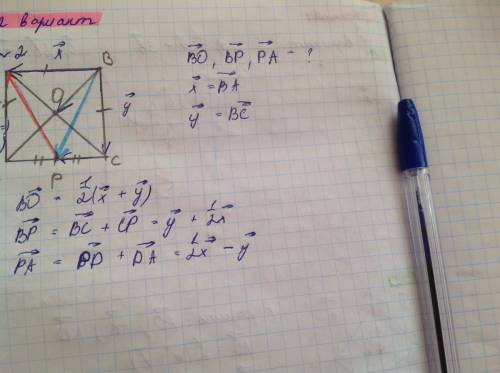 вариант
2 x⃗ B
BO⃗, BP⃗, PA⃗ - ?
x⃗ = BA⃗
O y⃗
y⃗ = BC⃗
P C
BO⃗ = 1/2(x⃗ + y⃗)
BP⃗ = BC⃗ + CP⃗ = y⃗ + 1/2x⃗
PA⃗ = PD⃗ + DA⃗ = 1/2x⃗ - y⃗